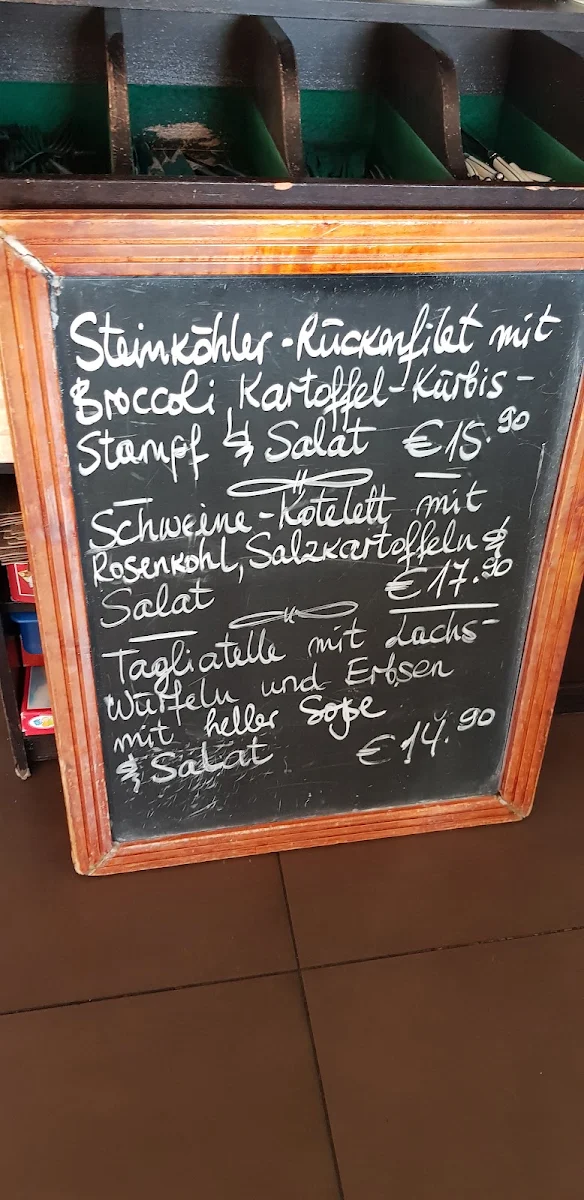 Steinköhler-Rückenfilet mit
Broccoli, Kartoffel-Kürbis-
Stampf & Salat €15.90
Schweine-Kotelett mit
Rosenkohl, Salzkartoffeln &
Salat €17.90
Tagliatelle mit Lachs-
Würfeln und Erbsen
mit heller Soße
& Salat €14.90